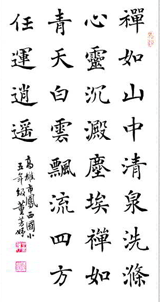 禪如山中清泉洗滌
心靈沉澱塵埃禪如
青天白雲飄流四方
任運逍遥
高雄市鳳西國小
五年級